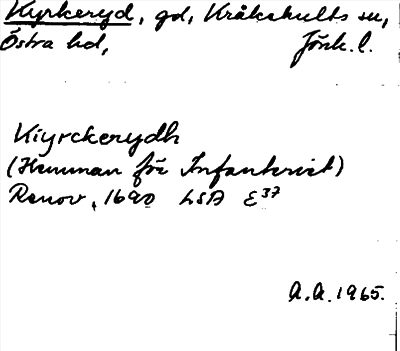 Kyrkeryd, gd, Kråkshults sn,
Östra hd, Jönk. l.
Kiyrckerydh
(Hemman för Infanterist)
Renov. 1690 LSA E37
A.A. 1965.